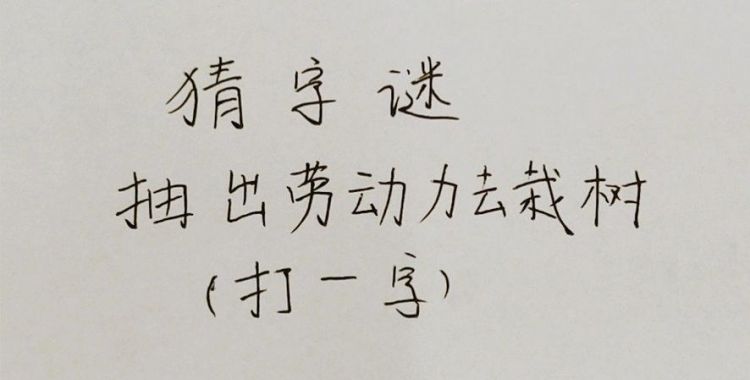 猜字谜
抽出劳动力去栽树
(打一字)